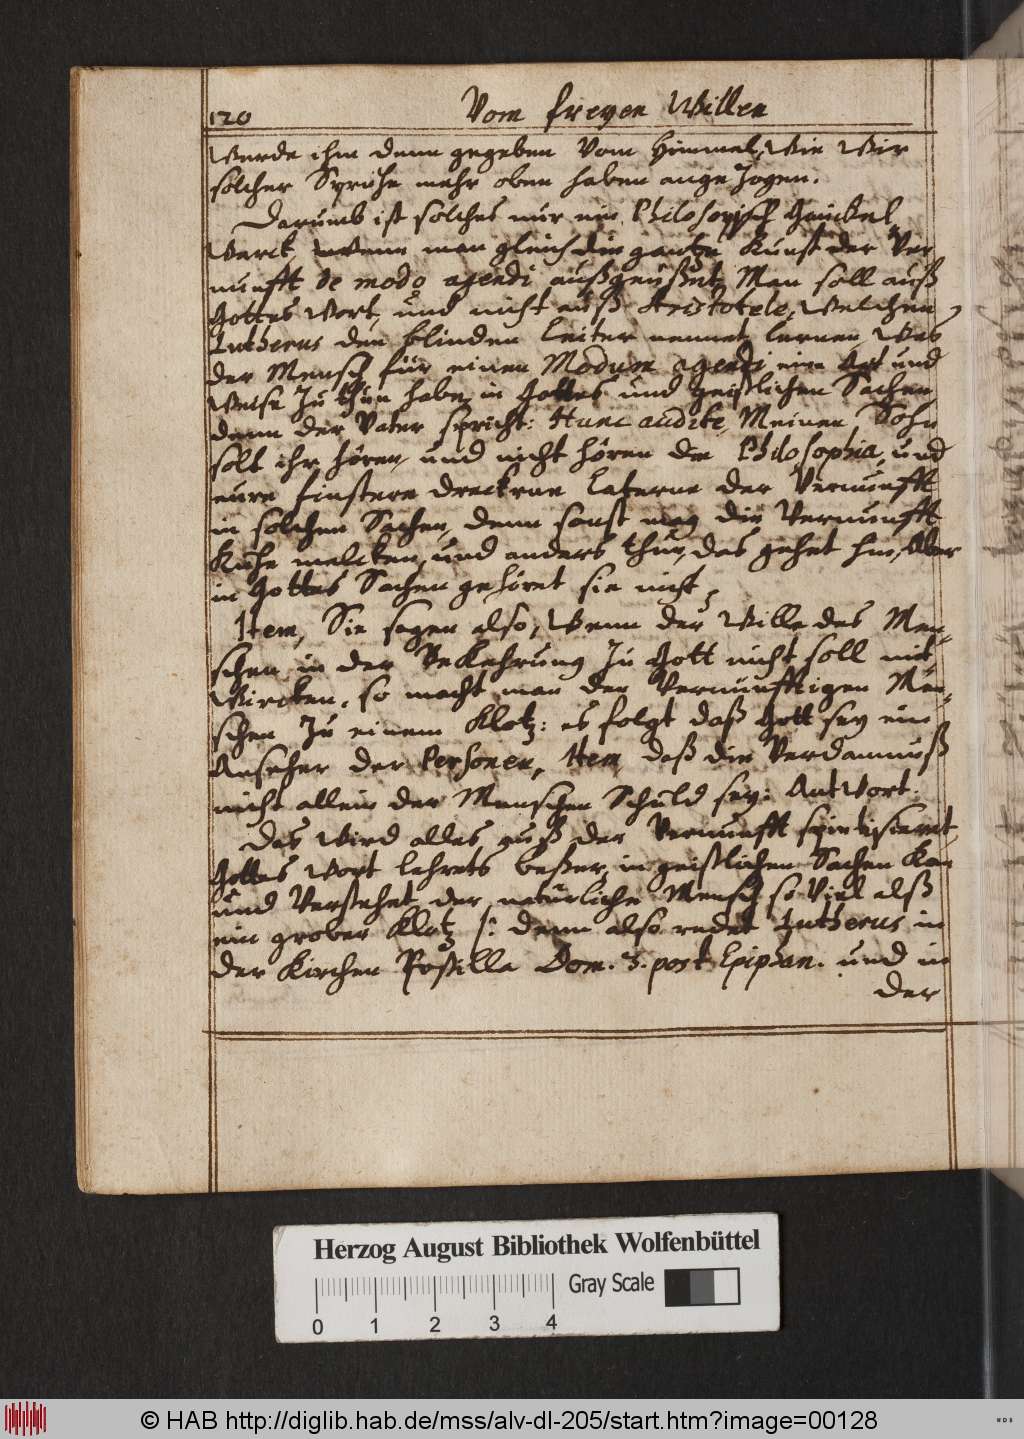 120
Vom freyen Willen
Werde ihm denn gegeben Vom Himmel, Wie Wir
solcher Sprüche mehr oben haben angezogen.
Darumb ist solches nur ein Philosophisch Gauckel
Werck, Wenn man gleich die gantze Kunst der Ver
nunfft de modo agendi außgeußet, Man soll auß
Gottes Wort, und nicht auß Aristotele, Welchen
Lutherus den blinden leiter nennet lernen, Was
der Mensch für einen Modum agendi eine Art und
Weise zu thun habe in Gottes und geistlichen Sachen
denn der Vater spricht: Hunc audite, Meinen Sohn
solt ihr hören, und nicht hören die Philosophia, und
eure finstere dreckene laterne der Vernunfft
in solchen Sachen, denn sonst mag die Vernunfft
Kühe melcken, und anders thun, das gehet hin, Aber
in Gottes Sachen gehöret sie nicht,
Item, Sie sagen also, Wenn der Wille des Men-
schen in der Bekehrung zu Gott nicht soll mit
Wircken, so macht man den Vernünfftigen Men-
schen zu einem Klotz: es folgt daß Gott sey ein
Anseher der Personen, Item daß die Verdamnuß
nicht allein der Menschen Schuld sey: AntWort.
Das Wird alles auß der Vernunfft spintisieret
Gottes Wort lehrets beßer, in geistlichen Sachen kan
und Verstehet der natürliche Mensch so Viel alß
ein grober Klotz /: denn also redet Lutherus in
der Kirchen Postilla Dom. 3. post Epiphan. und in
der
Herzog August Bibliothek Wolfenbüttel
Gray Scale
0 1 2 3 4
© HAB http://diglib.hab.de/mss/alv-dl-205/start.htm?image=00128